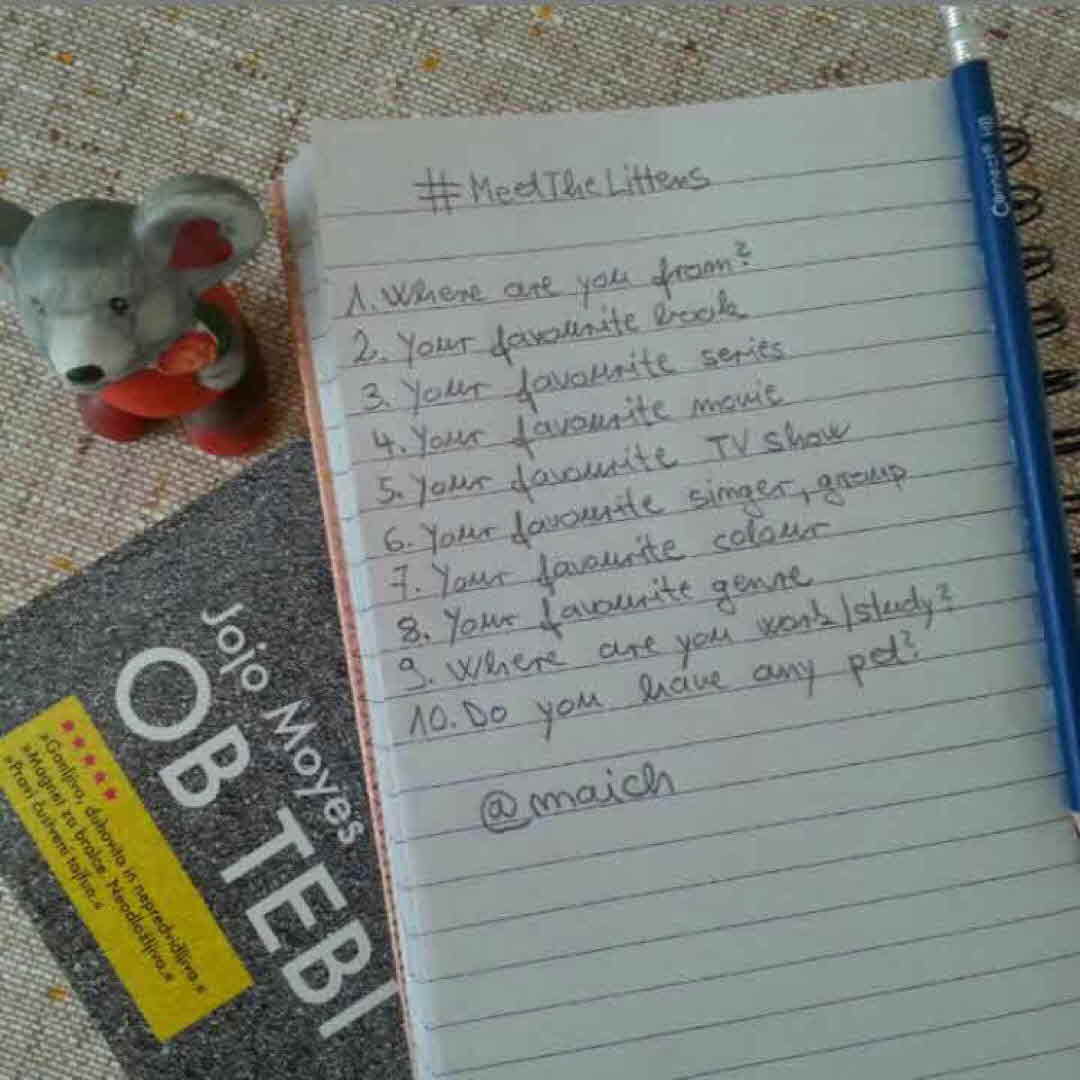 #MeetTheLittens
1. Where are you from?
2. Your favourite book
3. Your favourite series
4. Your favourite movie
5. Your favourite TV show
6. Your favourite singer, group
7. Your favourite colour
8. Your favourite genre
9. Where are you work/study?
10. Do you have any pet?
@maich
Jojo Moyes
OB TEBI
»Ganljiva, duhovita in nepredvidljiva.«
»Magnet za bralce. Neodložljiva.«
»Pravi čustvene